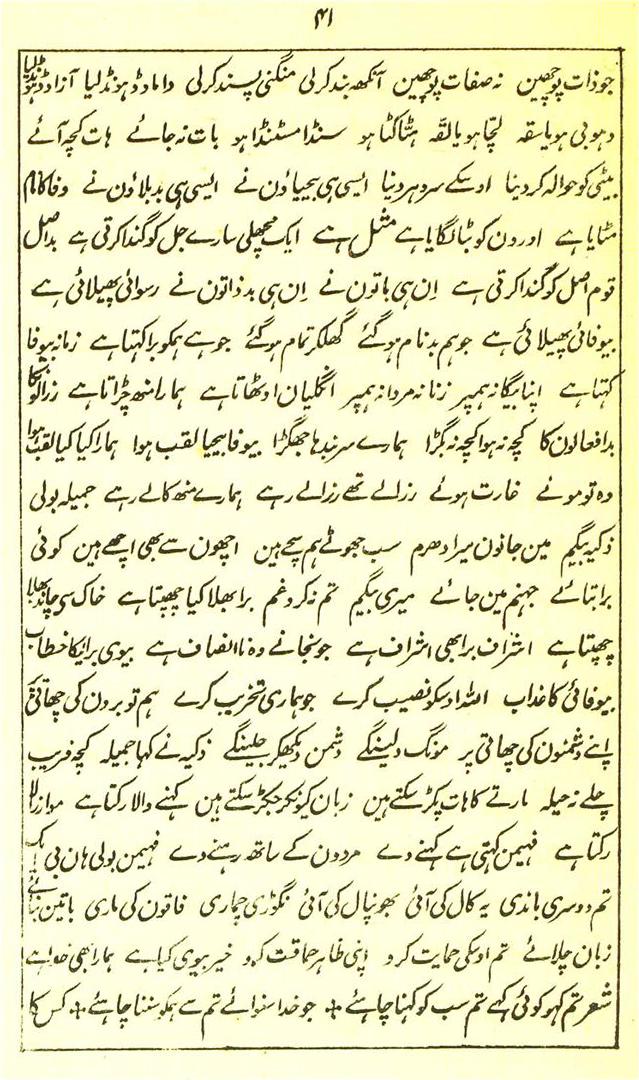 ۴۱
جو ذات پوچھین نہ صفات پوچھین آنکھہ بند کرلی منگنی پسند کرلی داماد ڈہونڈلیا آزاد ڈہونڈلیا
دہوبی ہو یا سقہ لچا ہو یا لقّہ ہٹّا کٹّا ہو سنڈا مسٹنڈا ہو بات نہ جائے ہات کچہ آئے
بیٹی کو حوالہ کردینا اوسکے سر دہر دینا ایسی ہی بیحیاؤن نے ایسی ہی بدبلاؤن نے وفا کا نام
مٹایا ہے اورون کو بٹا لگایا ہے مثل ہے ایک مچھلی سارے جل کو گندا کرتی ہے بداصل
قوم اصل کو گندا کرتی ہے اِن ہی باتون نے اِن ہی بدذاتون نے رسوائی پھیلائی ہے
بیوفائی پھیلائی ہے جو ہم بدنام ہوگئے گھلکر تمام ہوگئے جو ہے ہمکو برا کہتا ہے زمانہ بیوفا
کہتا ہے اپنا بیگانہ ہمپر زنانہ مردانہ ہمپر انگلیان اوٹھاتا ہے ہمارا منھ چڑاتا ہے
بد افعالون کا کچہ نہ ہوا کچہ نہ بگڑا ہمارے سر بندہا جھگڑا بیوفا بیحیا لقب ہوا ہمارا کیا کیا لقب ہوا
وہ تو موئے غارت ہوئے رزالے تھے رزالے رہے ہمارے منھ کالے رہے جمیلہ بولی
ذکیہ بیگم مین جانون میرا دھرم سب جھوٹے ہم سچے ہین اچھون سے بھی اچھے ہین کوئی
برا بتائے جہنم مین جائے میری بیگم تم نہ کرو غم برا بھلا کیا چھپتا ہے خاک سی چاند بھلا
چھپتا ہے اشراف برا بھی اشراف ہے جو نجانے وہ ناانصاف ہے بیوی برائیکا خطاب
بیوفائی کا عذاب اللہ اوسکو نصیب کرے جو ہماری تخریب کرے ہم تو برون کی چھاتی
اپنے دشمنون کی چھاتی پر مونگ دلینگے دشمن دیکھکر جلینگے ذکیہ نے کہا جمیلہ کچہ فریب
چلے نہ حیلہ مارتے کا ہات پکڑ سکتے ہین زبان کیونکر جکڑ سکتے ہین کہنے والا رکتا ہے
رکتا ہے فہیمن کہتی ہے کہنے دے مردون کے ساتھ رہنے دے فہیمن بولی ہان بی
تم دوسری باندی یہ کال کی آئی بھوپال کی آئی نگوڑی چماری فاقون کی ماری باتین بنائے
زبان چلائے تم اوسکی حمایت کرو اپنی ظاہر حماقت کرو خیر بیوی کیا ہے ہمارا بھی خدا ہے
شعر تم کہو کوئی کہے تم سب کو کہنا چاہئے ÷ جو خدا سنوائے تم سے ہمکو سننا چاہئے ÷ کس کا